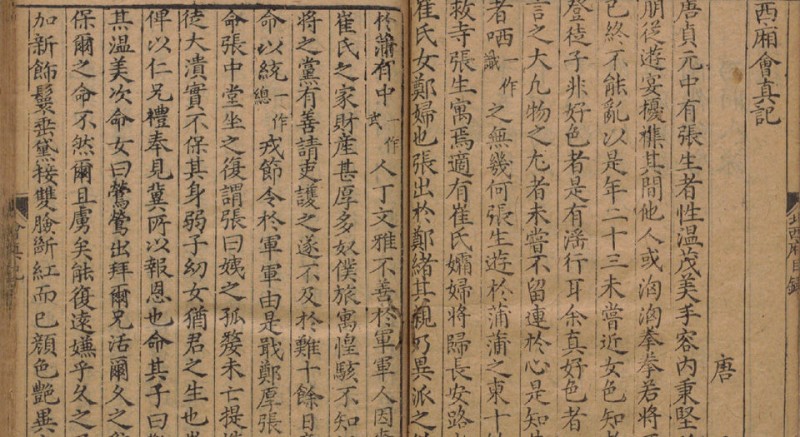 西廂會真記
唐
唐貞元中有張生者性溫茂美丰容内秉堅
朋從遊宴擾雜其間他人或洶洶拳拳若將
已終不能亂以是年二十三未嘗近女色知
登徒子非好色者是有淫行耳余真好色者
言之大凡物之尤者未嘗不留連於心是知
者哂一作識之無幾何張生遊於蒲蒲之東十
救寺張生寓焉適有崔氏孀婦將歸長安路
崔氏女鄭婦也張出於鄭緒其親乃異派之
於蒲有中一作人丁文雅不善於軍軍人因
崔氏之家財産甚厚多奴僕旅寓惶駭不知
將之黨有善請吏護之遂不及於難十餘日
命以統一作總戎節令於軍軍由是戢鄭厚張
命張中堂坐之復謂張曰姨之孤嫠未亡提
徒大潰實不保其身弱子幼女猶君之生也
俾以仁兄禮奉見冀所以報恩也命其子曰
其溫美次命女曰鶯鶯出拜爾兄活爾久之
保爾之命不然爾且虜矣能復遠嫌乎久之
加新飾鬟垂黛接雙臉斷紅而已顔色艷異
北西廂目錄
會真記